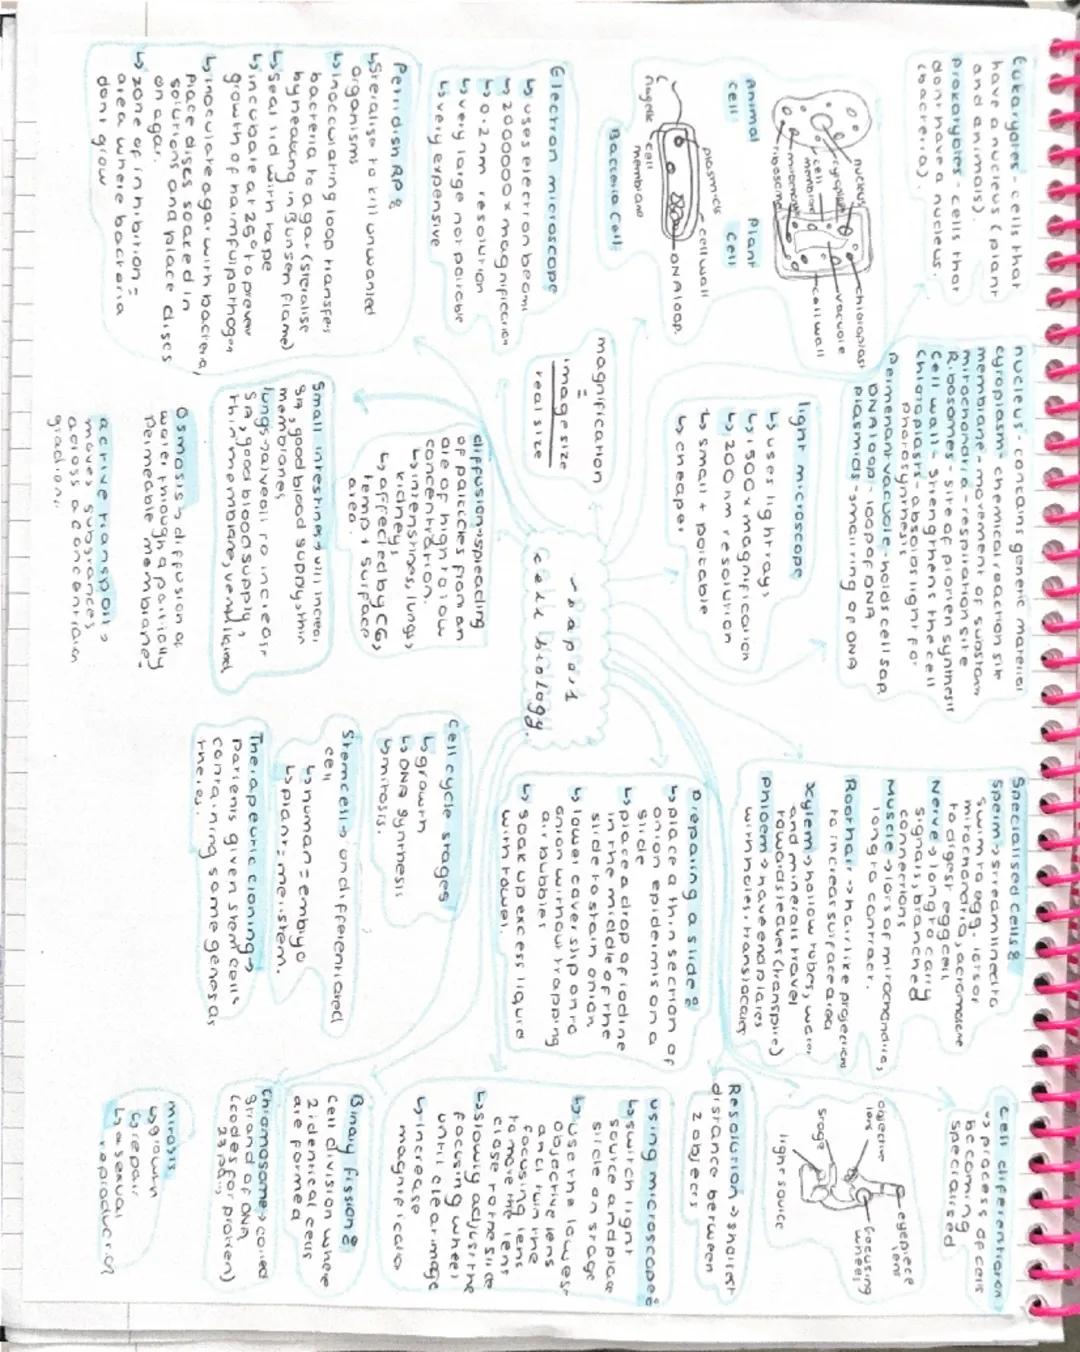 Eukaryotes - cells that
have a nucleus (plant
and animals).
Prokaryotes - cells that
dont have a nucleus.
(bacteria).
nucleus
cytoplasm
cell
membrane
ribosome
chloroplast
vacuole
cell wall
Animal
cell
Plant
cell
plasmids
cell wall
DNA loop
flagella
cell
membrane
Bacteria Cell
Electron microscope
↳ uses electron beam
↳ 2000000x magnification
↳ 0.2nm resolution
↳ very large not portable
↳ very expensive
Petri dish RP:
↳ Steralise to kill unwanted
organisms
↳ inoculating loop transfers
bacteria to agar (steralise
by heating in Bunsen flame)
↳ seal lid with tape
↳ incubate at 25°c to prevent
growth of harmful pathogen
↳ inoculate agar with bacteria,
place discs soaked in
solutions and place discs
on agar.
↳ zone of inhibition =
area where bacteria
dont grow
nucleus - contains genetic material
cytoplasm - chemical reaction site
membrane - movement of substan
mitochondria - respiration site
Ribosomes - site of protien synthesis
Cell wall - strengthens the cell
Chloroplasts - absorbs light for
photosynthesis
Permenant vacuole - holds cell sap
DNA loop - loop of DNA
plasmids - small ring of DNA
light microscope
↳ uses light rays
↳ 1500x magnification
↳ 200nm resolution
↳ small + portable
↳ cheaper
magnification
=
image size
real size
diffusion → spreading
of particles from an
are of high to low
concentration.
↳ intenstines, lungs,
kidneys
↳ affected by CG,
temp + surface
area.
Small intestines → villi increase
SA, good blood supply, thin
membranes
lungs → alveoli to increase
SA, good blood supply,
thin membrane, ventilated
Osmosis → diffusion of
water through a partially
permeable membrane.
active transport →
moves substances
across a concentration
gradient.
~ paper 1
cell biology.
Specialised cells:
Sperm → streamlined to
swim to egg, lots of
mitochondria, acrosome
to digest egg cell
Nerve → long to carry
signals, branched
connections
Muscle → lots of mitochondria,
long to contract.
Root hair → hair like projections
to increas surface area
Xylem → hollow tubes, water
and minerals travel
towards leaves (transpire)
Phloem → have end plates
with holes, translocation
Preparing a slide:
↳ place a thin section of
onion epidermis on a
slide
↳ place a drop of iodine
in the middle of the
slide to stain onion
↳ lower coverslip onto
onion without trapping
air bubbles
↳ soak up excess liquid
with towel.
Cell cycle stages
↳ growth
↳ DNA synthesis
↳ mitosis.
Stem cell → undifferentiated
cell
↳ human = embryo
↳ plant = meristem.
Therapeutic cloning →
patients given stem cells
containing same genes as
theres.
cell diferentiation
↳ process of cells
becoming
specialised
eyepiece
lens
objective
lens
focusing
wheels
stage
light source
Resolution → shortest
distance between
2 objects
using microscope:
↳ switch light
source and place
slide on stage
↳ use the lowest
objective lens
and turn the
focusing lens
to move the lens
close to the slide
↳ slowly adjust the
focusing wheel
until clear image
↳ increase
magnification
Binary fission:
cell division where
2 identical cells
are formed
Chromosome → coiled
strand of DNA
(codes for protien)
mitosis,
↳ growth
↳ repair
↳ asexual
reproduction